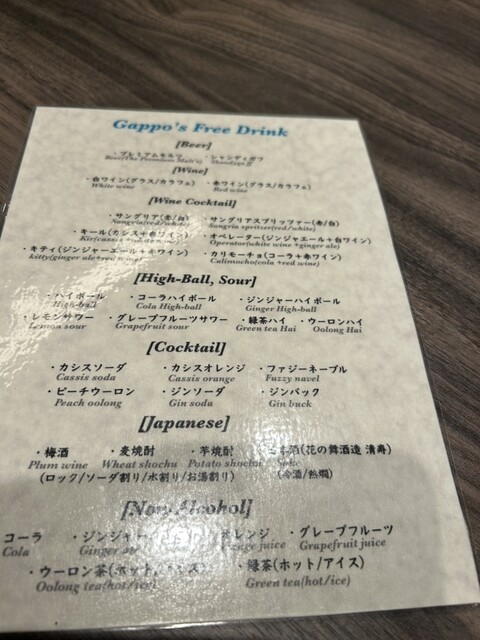 Gappo's Free Drink
[Beer]
・プレミアムモルツ ・シャンディガフ
Beer(The Premium Malt's) Shandygaff
[Wine]
・白ワイン(グラス/カラフェ) ・赤ワイン(グラス/カラフェ)
White wine Red wine
[Wine Cocktail]
・サングリア(赤/白) ・サングリアスプリッツァー(赤/白)
Sangria(red/white) Sangria spritzer(red/white)
・キール(カシス+赤ワイン) ・オペレーター(ジンジャエール+白ワイン)
Kir(cassis Operator(white wine+ginger ale)
・キティ(ジンジャーエール+ワイン) ・カリモーチョ(コーラ+赤ワイン)
kitty(ginger ale+red Calimucho(cola +red wine)
[High-Ball, Sour]
・ハイボール ・コーラハイボール ・ジンジャーハイボール
High-ball Cola High-ball Ginger High-ball
・レモンサワー ・グレープフルーツサワー ・緑茶ハイ ・ウーロンハイ
Lemon sour Grapefruit sour Green tea Hai Oolong Hai
[Cocktail]
・カシスソーダ ・カシスオレンジ ・ファジーネーブル
Cassis soda Cassis orange Fuzzy navel
・ピーチウーロン ・ジンソーダ ・ジンバック
Peach oolong Gin soda Gin buck
[Japanese]
・梅酒 ・麦焼酎 ・芋焼酎 日本酒(花の舞酒造 清寿)
Plum wine Wheat shochu Potato shochu Sake
(ロック/ソーダ割り/水割り/お湯割り) (冷酒/熱燗)
[Non Alcohol]
コーラ ・ジンジャー オレンジ ・グレープフルーツ
Cola Ginger juice Grapefruit juice
・ウーロン茶(ホット/アイス) ・緑茶(ホット/アイス)
Oolong tea(hot/ice) Green tea(hot/ice)